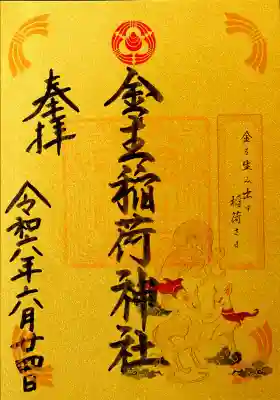 金を生み出す
稲荷さま
金生稲荷神社
奉拝
令和六年六月廿四日